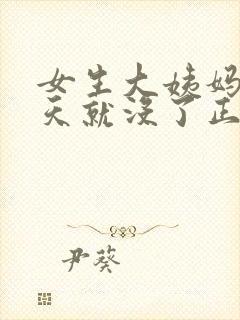 女生大姨妈
天就没了正
尹葵